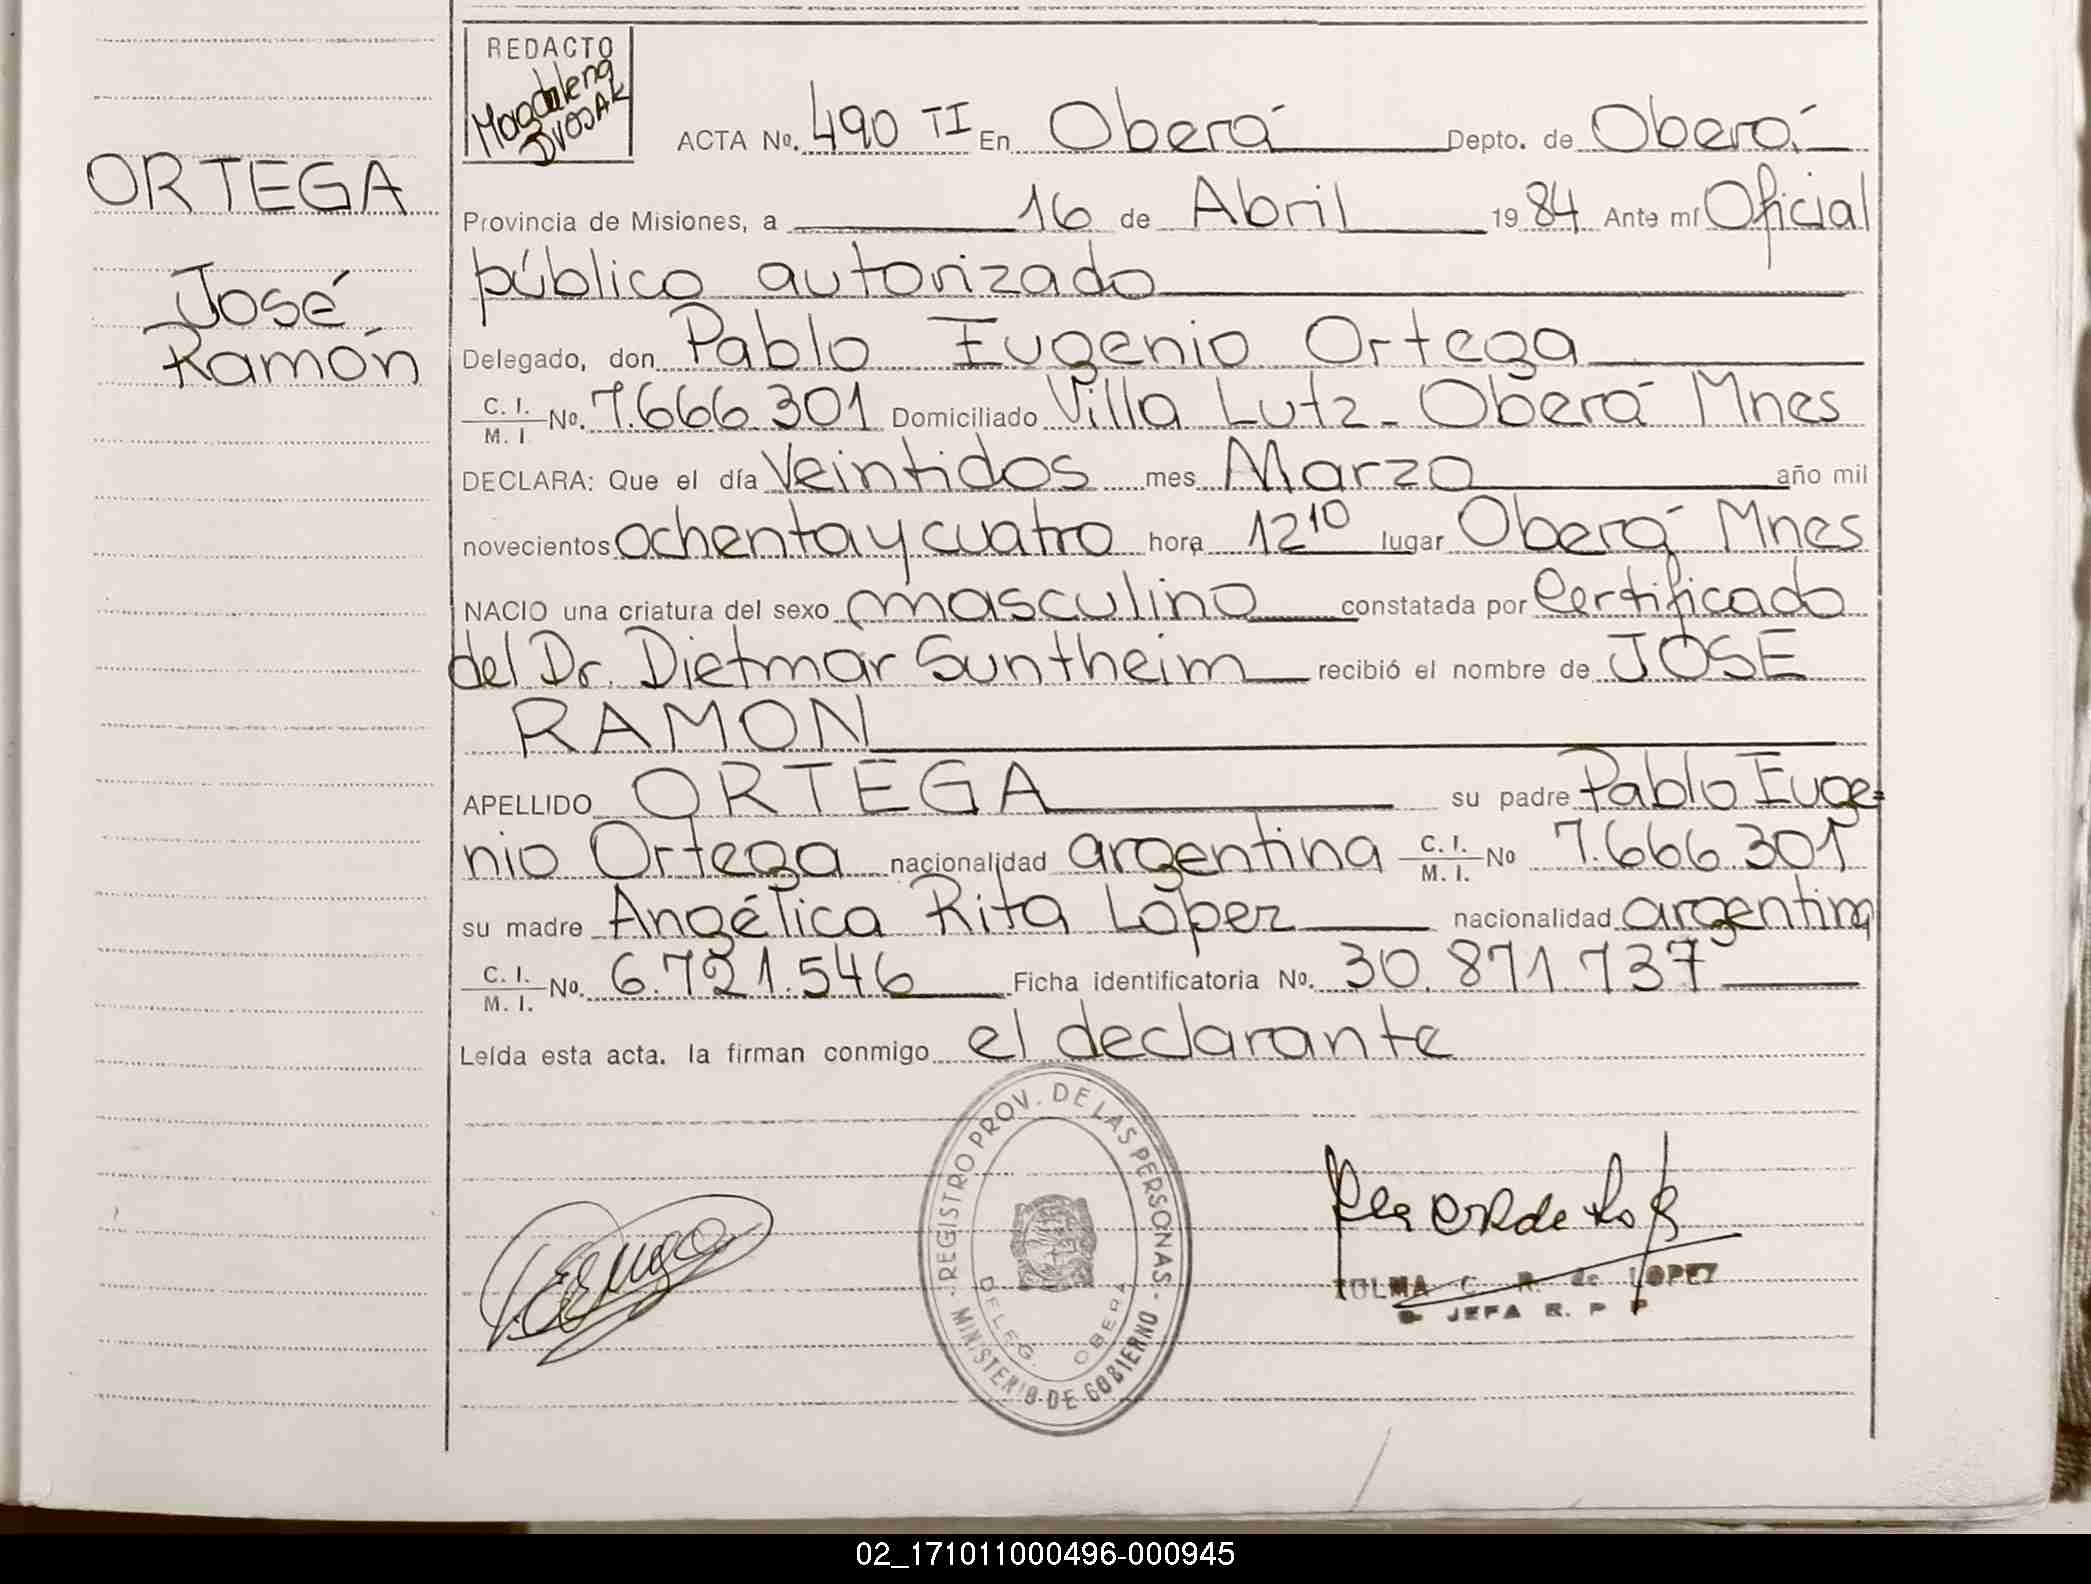 REDACTO
Magdalena
DVOSAK
ACTA No. 490 TI En Oberá Depto. de Oberá
ORTEGA
Provincia de Misiones, a 16 de Abril 1984 Ante mí Oficial
público autorizado
José
Ramón
Delegado, don Pablo Eugenio Ortega
C. I. / M. I No. 7.666.301 Domiciliado Villa Lutz - Oberá Mnes
DECLARA: Que el día Veintidos mes Marzo año mil
novecientos ochenta y cuatro hora 12 10 lugar Oberá Mnes
NACIO una criatura del sexo masculino constatada por Certificado
del Dr. Dietmar Suntheim recibió el nombre de JOSE
RAMON
APELLIDO ORTEGA su padre Pablo Euge=
nio Ortega nacionalidad argentina C. I. / M. I. No 7.666.301
su madre Angélica Rita López nacionalidad argentina
C. I. / M. I. No. 6.721.546 Ficha identificatoria No. 30.871.737
Leída esta acta. la firman conmigo el declarante
REGISTRO PROV. DE LAS PERSONAS
DELEG. OBERA
MINISTERIO DE GOBIERNO
C. R. de LOPEZ
JEFA R. P P
02_171011000496-000945